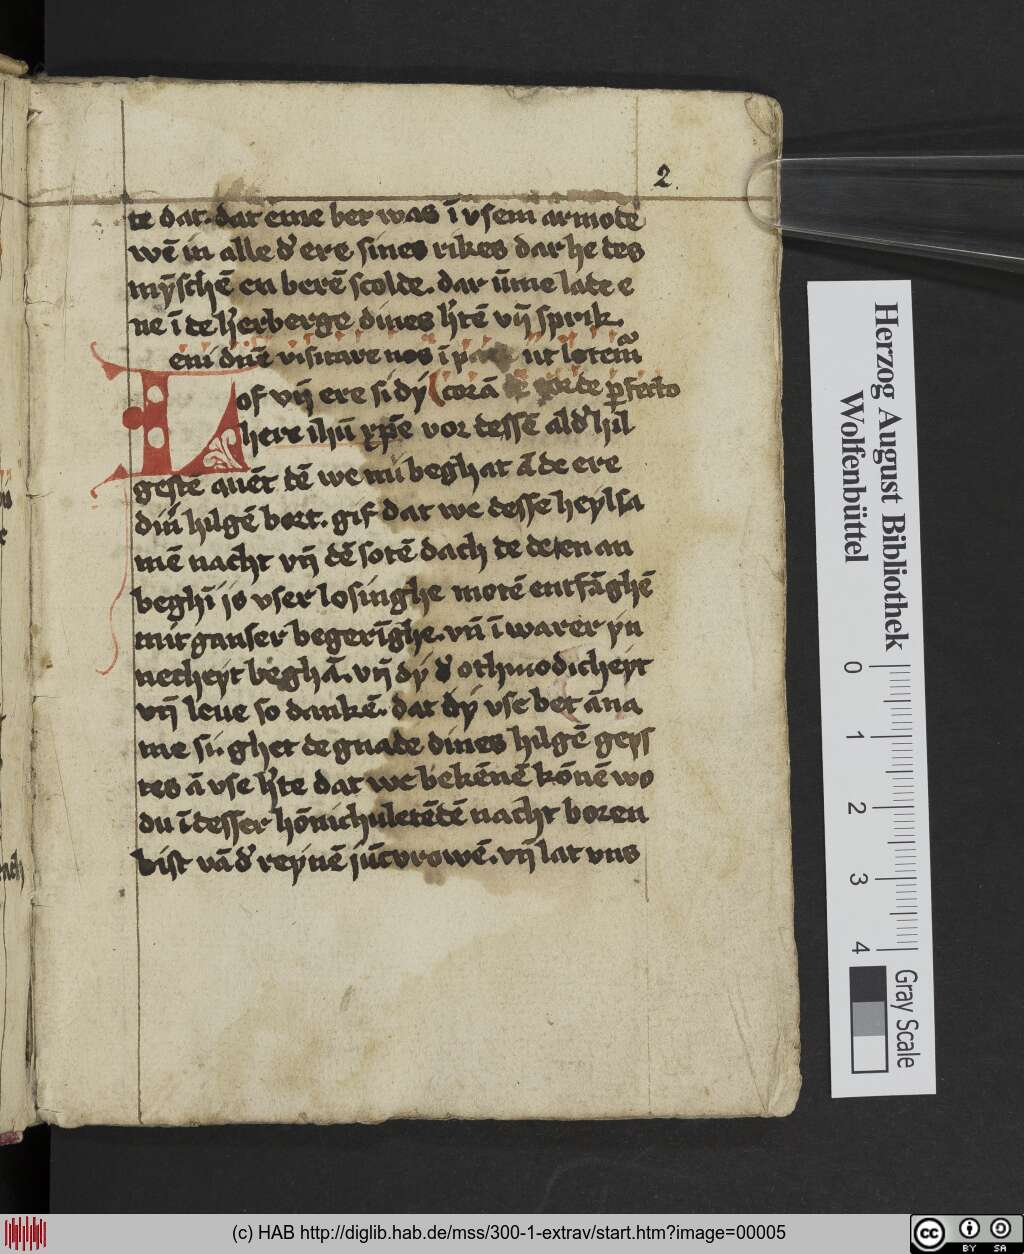 2.
te dat. dat eme ber was ī vsem armode
wē in alle d' ere sines rikes dar he des
mȳschē en berē scolde. dar ūme late e
ne ī de h'erberge dines h'tē vn̄ sprik.
eni dn̄e visitare nos ī ut letem
Lof vn̄ ere si dy corā te corde p̄fecto
here ihū xp̄e vor dessē ald' hil
gestē auēt dē we nu beghat ā de ere
diner hilgē bort. gif dat we desse heylsa
mē nacht vn̄ dē sotē dach de desen an
beghī jo vser losinghe motē entfāghē
mit ganser begerīghe. vn̄ ī warer yn
necheyt beghā. vn̄ dy d' othmodicheyt
vn̄ leue so dankē. dat dy vse bet āna
me si. ghet de gnade dines hilgē geys
tes ā vse h'te dat we bekēnē kōnē wo
du ī desser hōnichuletēdē nacht boren
bist vā d' reynē jūcvrowē. vn̄ lat vns
Herzog August Bibliothek
Wolfenbüttel
0 1 2 3 4
Gray Scale
(c) HAB http://diglib.hab.de/mss/300-1-extrav/start.htm?image=00005
cc BY SA